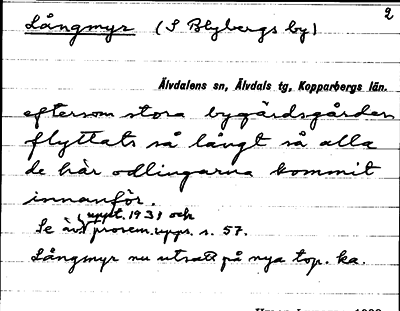 2
Långmyr (S Blybergs by)
Älvdalens sn, Älvdals tg, Kopparbergs län.
eftersom stora bygärdsgården
flyttats så långt så alla
de här odlingarna kommit
innanför.
uppt. 1931 och
Se äv. provem.uppt. s. 57.
Långmyr nu utsatt på nya top. ka.